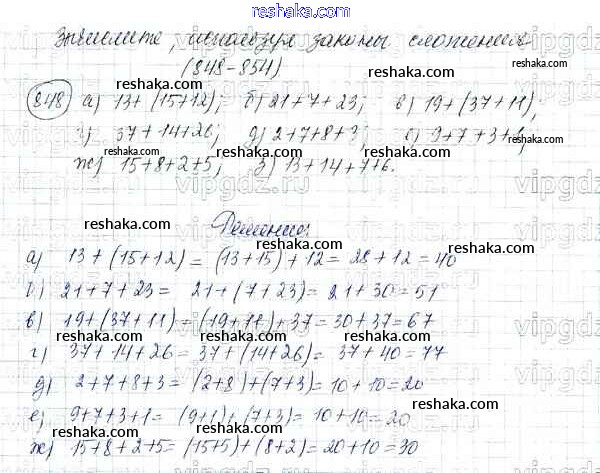 reshaka.com
Вычислите, используя законы сложения
(848-854)
848 а) 13+(15+12); б) 21+7+23; в) 19+(37+11);
г) 37+14+26; д) 2+7+8+3; е) 9+7+3+1;
ж) 15+8+2+5; з) 13+14+7+6.
Решение:
а) 13+(15+12)=(13+15)+12=28+12=40
б) 21+7+23= 21+(7+23)= 21+30=51
в) 19+(37+11)=(19+11)+37=30+37=67
г) 37+14+26= 37+(14+26)= 37+40=77
д) 2+7+8+3= (2+8)+(7+3)=10+10=20
е) 9+7+3+1= (9+1)+(7+3)=10+10=20
ж) 15+8+2+5=(15+5)+(8+2)=20+10=30